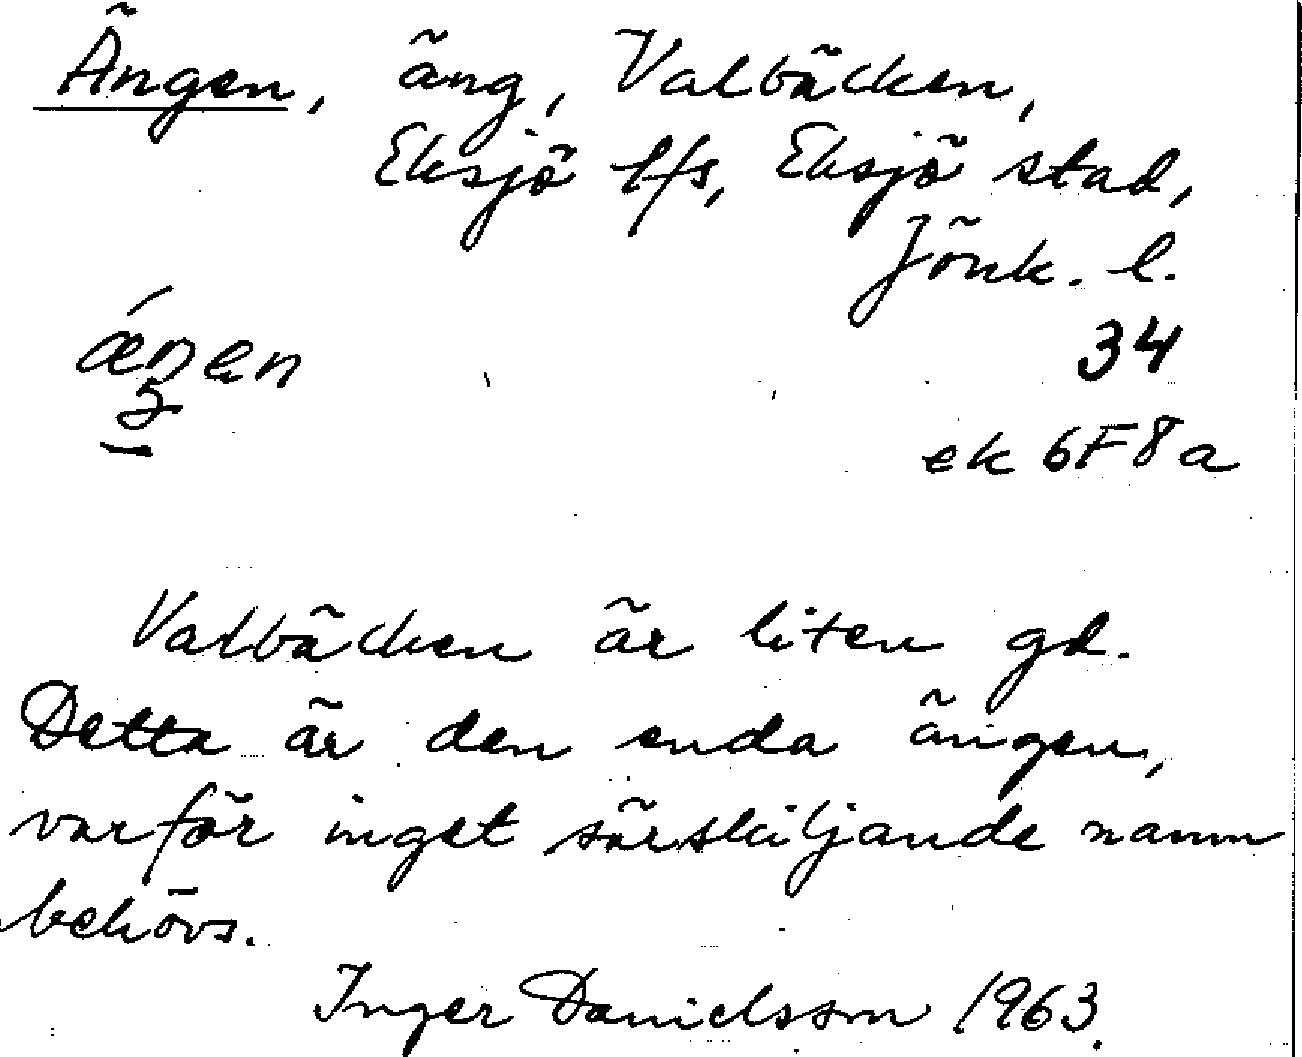 Ängen, äng, Valbäcken,
Eksjö lfs, Eksjö stad,
Jönk. l.
34
ek 6F8a
Valbäcken är liten gd.
Detta är den enda ängen,
varför inget särskiljande namn
behövs.
Inger Danielsson 1963.